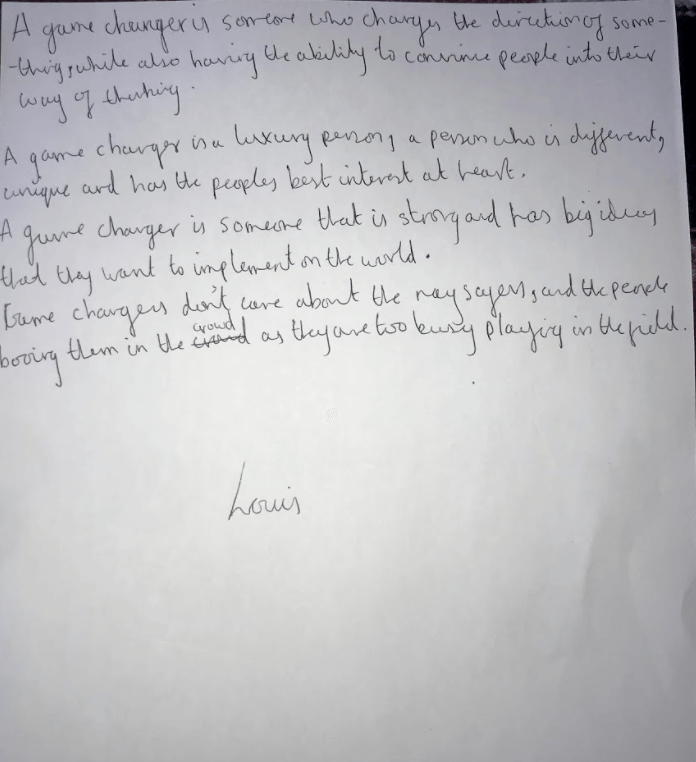 A game changer is someone who changes the direction of some-
-thing, while also having the ability to convince people into their
way of thinking.
A game changer is a luxury person, a person who is different,
unique and has the peoples best interest at heart.
A game changer is someone that is strong and has big ideas
that they want to implement on the world.
Game changers don't care about the naysayers, and the people
booing them in the crowd as they are too busy playing in the field.
Louis